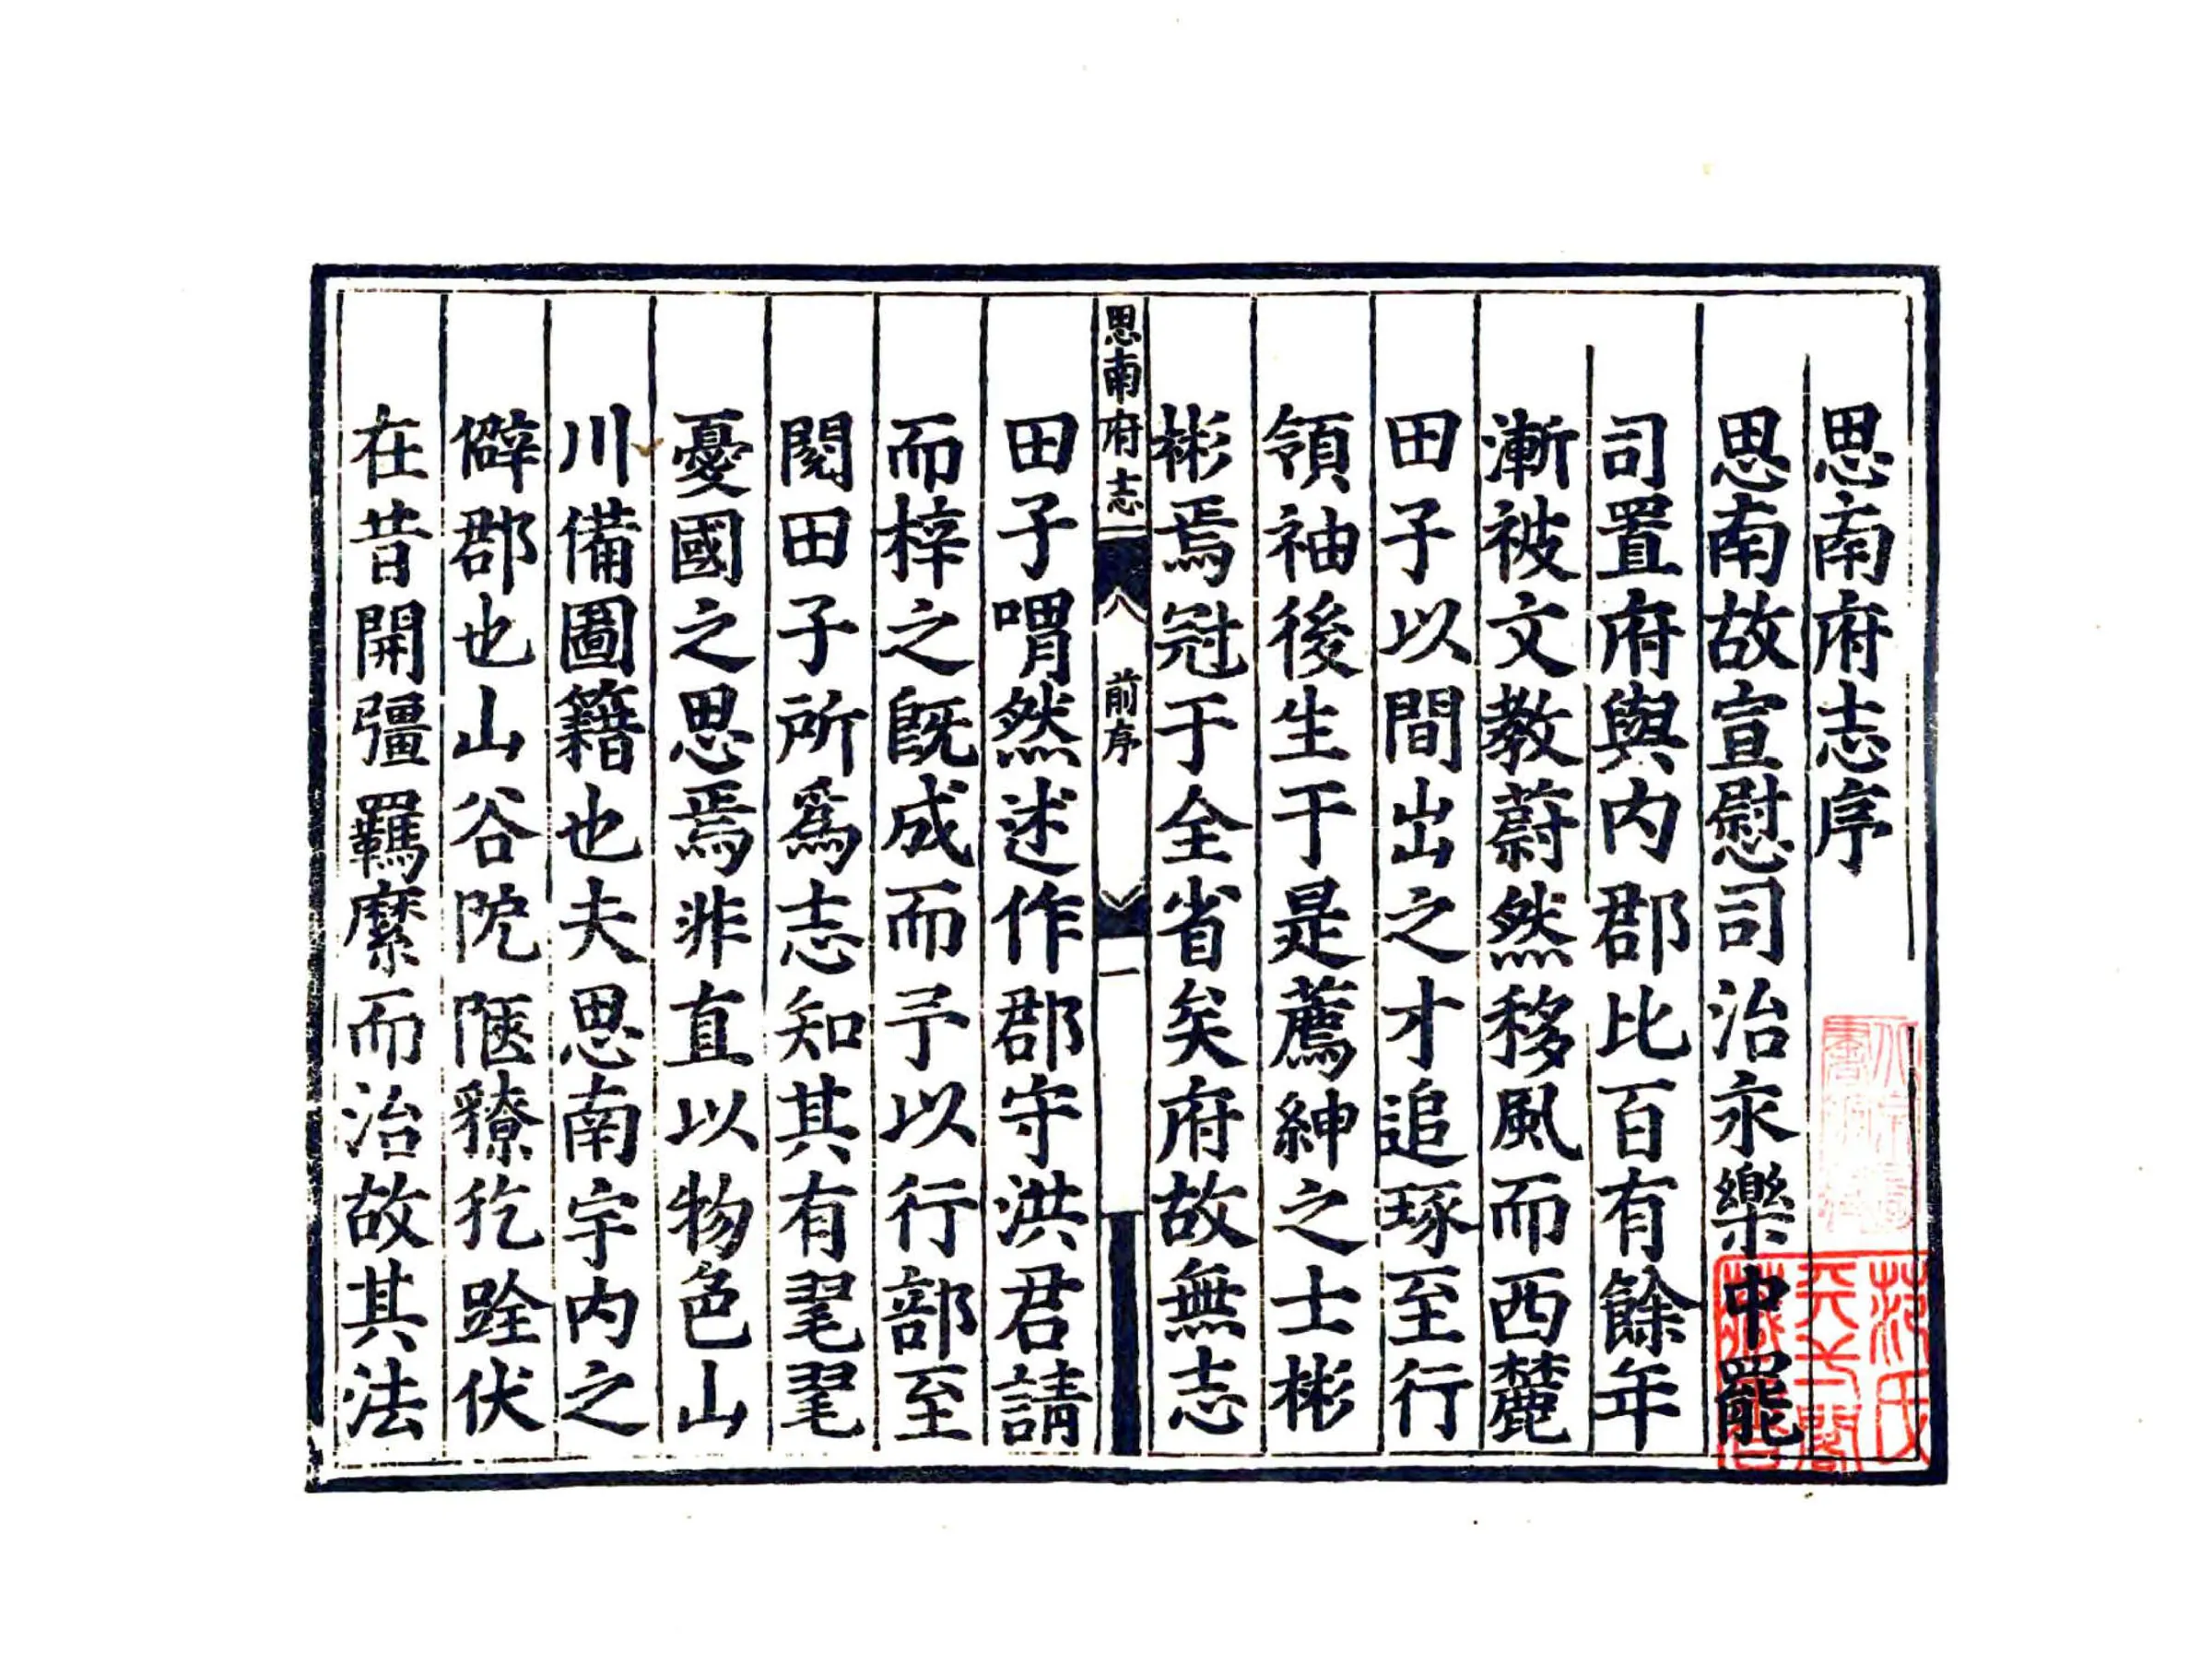 思南府志序
思南故宣慰司治永樂中罷
司置府與内郡比百有餘年
漸被文教蔚然移風而西麓
田子以間出之才追琢至行
領袖後生于是薦紳之士彬
彬焉冠于全省矣府故無志
思南府志 前序 一
田子喟然述作郡守洪君請
而梓之既成而予以行部至
閱田子所爲志知其有毣毣
憂國之思焉非直以物色山
川備圖籍也夫思南宇内之
僻郡也山谷阸陋獠犵跧伏
在昔開疆羈縻而治故其法
范氏
天一閣
藏書